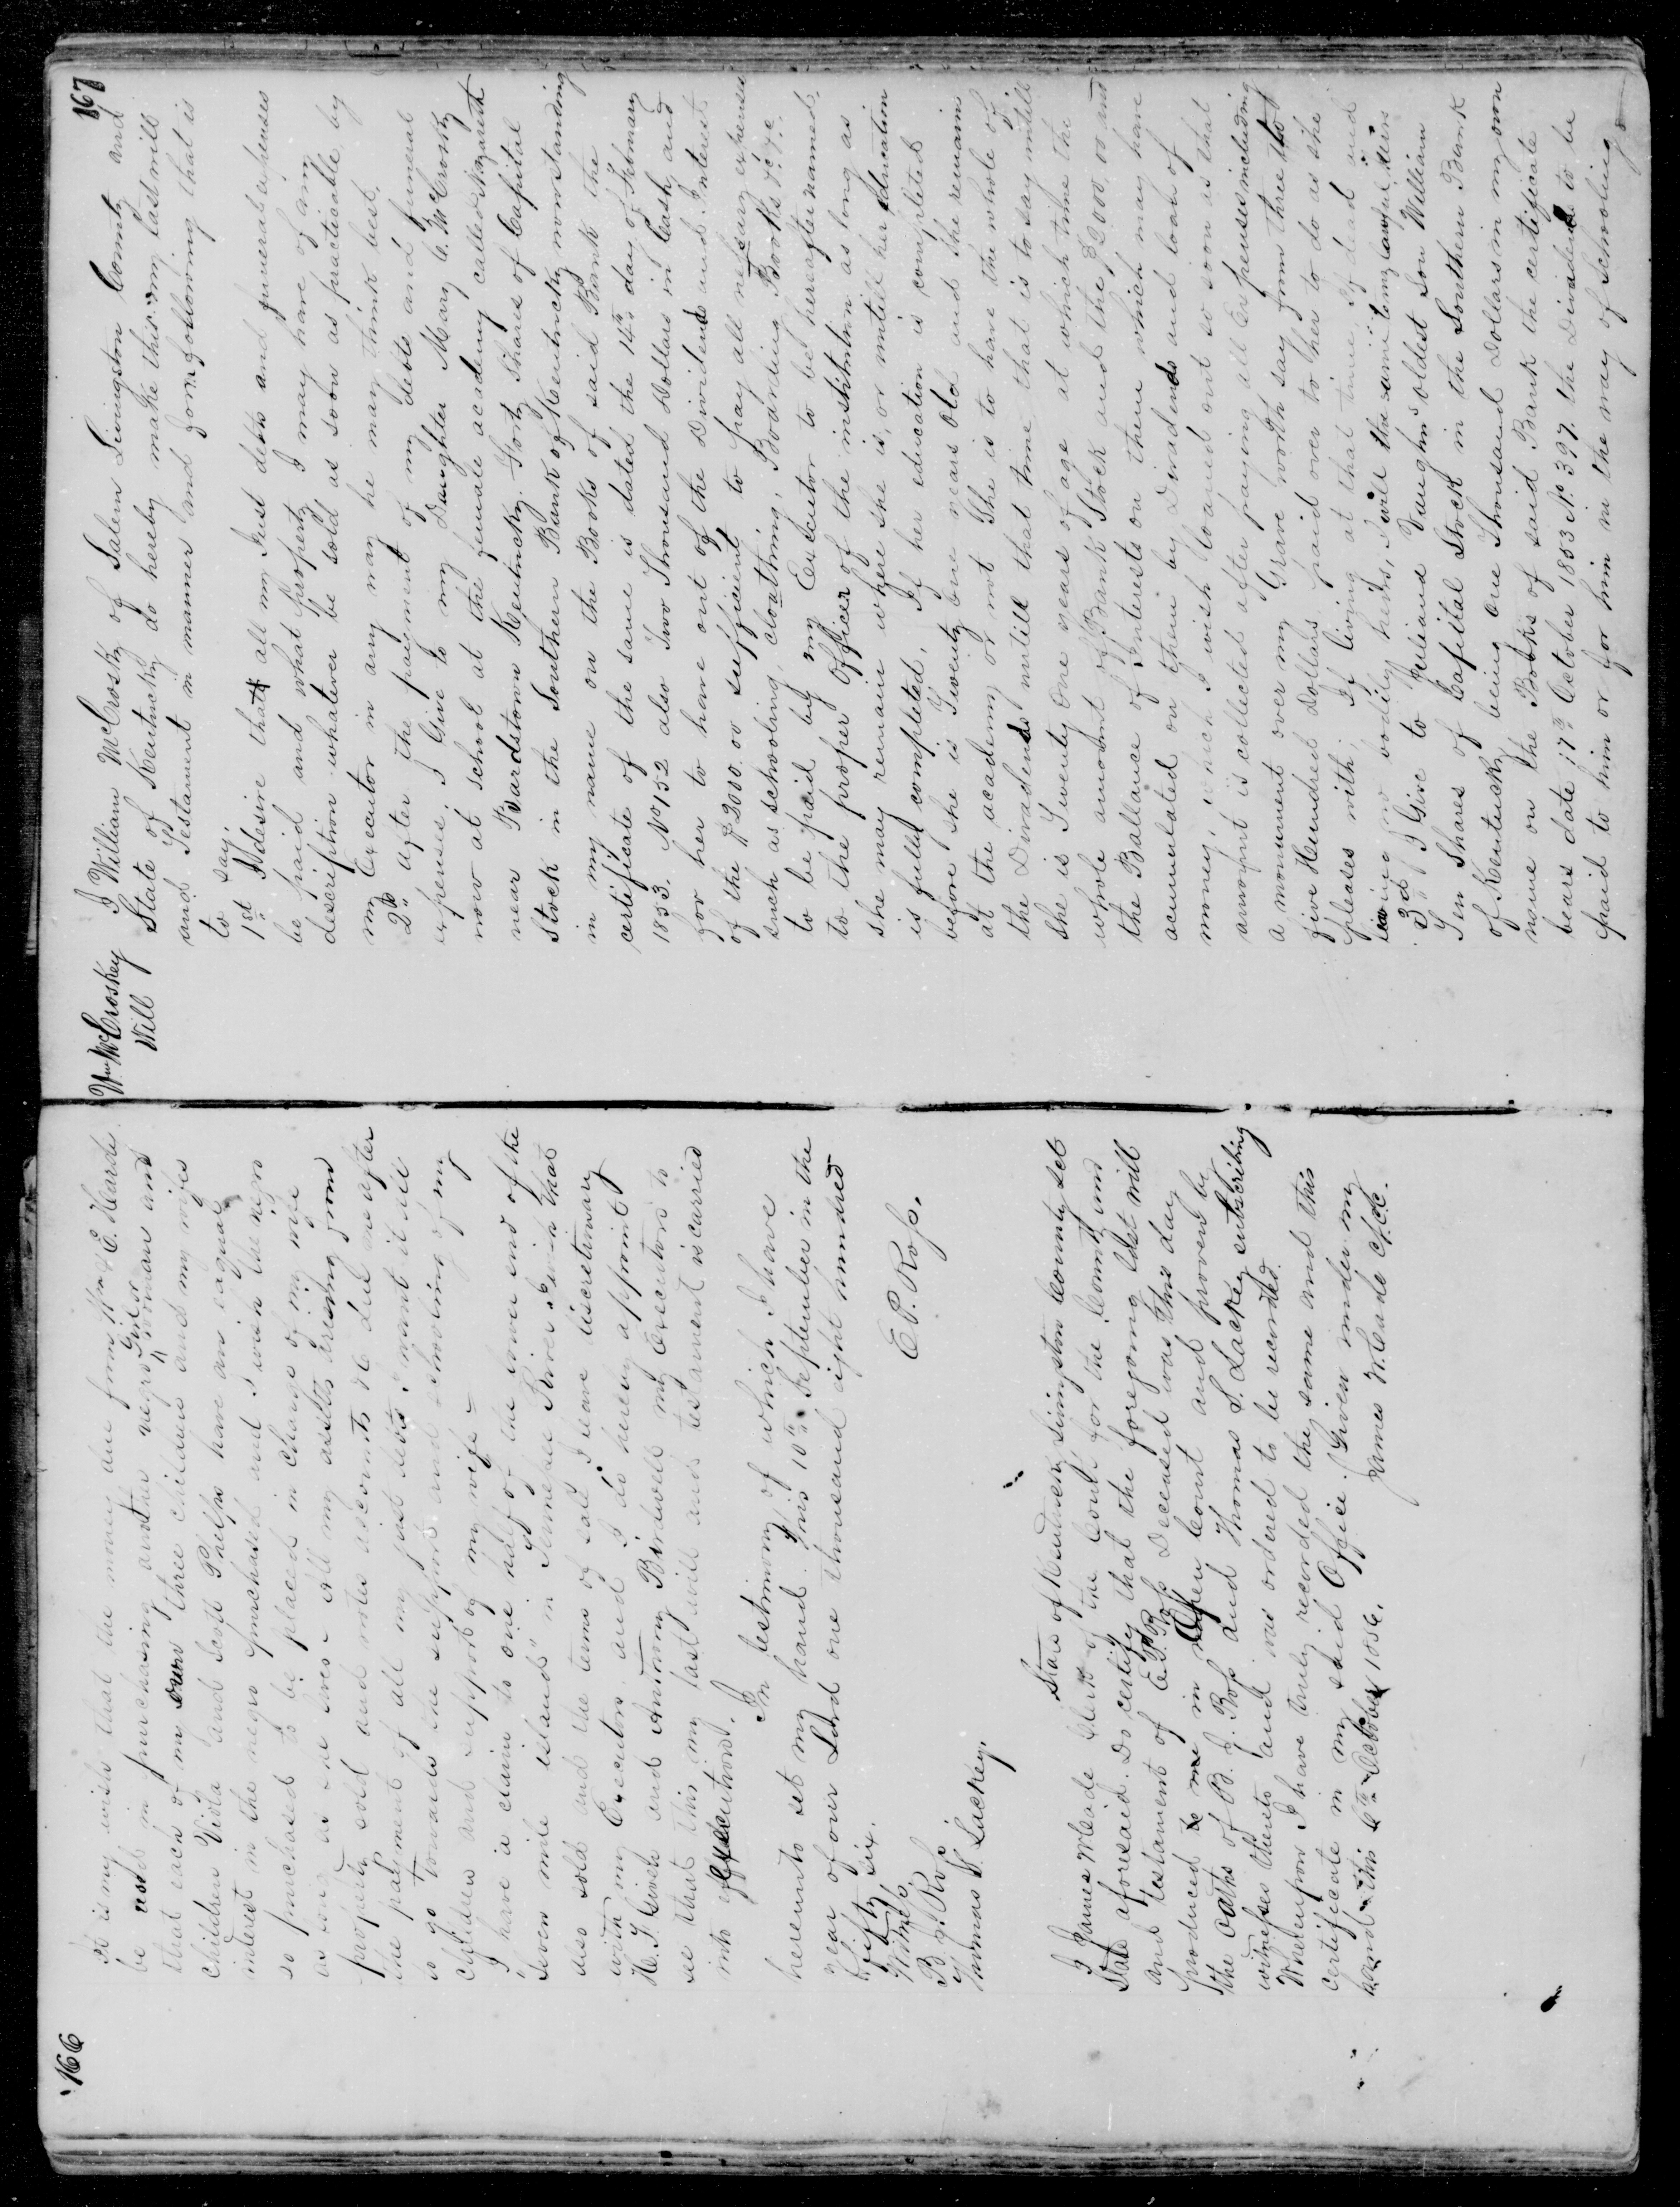 166
It is my wish that the money due from Wm E. Hardi
be used in purchasing another negro Girl or woman and
that each of my own three children and my wifes
Children Viola and Scott Phelps have an equal
interest in the negro purchased and I wish the negro
so purchased to be placed in charge of my wife
as long as she lives - All my assetts arising from
property sold and notes accounts &c due me after
the payment of all my just debts I want it all
to go towards the support and schooling of my
Children and support of my wife -
I have a claim to one half of the lower end of the
Seven mile island in Tennessee River I wish that
also sold and the terms of sale I leave discretionary
with my Executors. and I do hereby appoint
H. F. Given and Anthony Bridwell my Executors to
see that this my last will and testament is carried
into execution.
In testimony of which I have
hereunto set my hand. This 10th September in the
year of our Lord one thousand eight hundred
fifty six.
E. P. Ross.
Witness
B. J. Ross
Thomas S. Lackey.
State of Kentucky Livingston County Set
I James W Cade Clerk of the Court for the County and
State aforesaid. Do certify that the foregoing last will
and testament of E. P. Ross Deceased was this day
produced to me in Open Court and proven by
the Oaths of B. J. Ross and Thomas S. Lackey subscribing
witnesses thereto and was ordered to be recorded.
Whereupon I have truly recorded the same and this
certificate in my said Office. Given under my
hand this 6th October 1856.
James W. Cade C.L.C.
167
Wm McCroskey
Will
I William McCrosky of Salem Livingston County and
State of Kentucky do hereby make this my last will
and Testament in manner and form following that is
to say,
1st I desire that all my Just debts and funeral expenses
be paid and what property I may have of any
description whatever be sold as soon as practicable by
my Executor in any way he may think best.
2d after the payment of my debts and funeral
expenses I Give to my Daughter Mary C. McCrosky
now at school at the female academy called Nazareth
near Bardstown Kentucky. Forty Shares of Capital
Stock in the Southern Bank of Kentucky now standing
in my name on the Books of said Bank the
certificate of the same is dated the 14th day of February
1853. No 152 also Two Thousand Dollars in Cash, and
for her to have out of the Dividends and Interest
of the $2000.00 sufficient to pay all necessary expenses
such as schooling, cloathing, Boarding, Books &c. &c.
to be paid by my Executor to be hereafter named,
to the proper Officer of the institution as long as
she may remain where she is, or untill her education
is fully completed, If her education is completed
before she is Twenty one years Old and she remain
at the academy or not She is to have the whole of
the Dividends untill that time that is to say untill
she is Twenty One years of age at which time the
whole amount of Bank Stock and the $2000,00 and
the Ballance of Interests on them which may have
acumulated on them by Dividends and loan of
money, which I wish loaned out so soon as that
amount is collected after paying all Expenses including
a monument over my Grave worth say from three to
five Hundred Dollars paid over to her to do as she
pleases with, If living at that time, If dead and
leaving no bodily heirs, I will the same to my lawful heirs
3d I Give to Juliand Vaughns oldest Son William
Ten Shares of Capital Stock in the Southern Bank
of Kentucky being One Thousand Dollars in my own
name on the Books of said Bank the certificate
bears date 17th October 1853 No. 397. the Dividends to be
paid to him or for him in the way of schooling